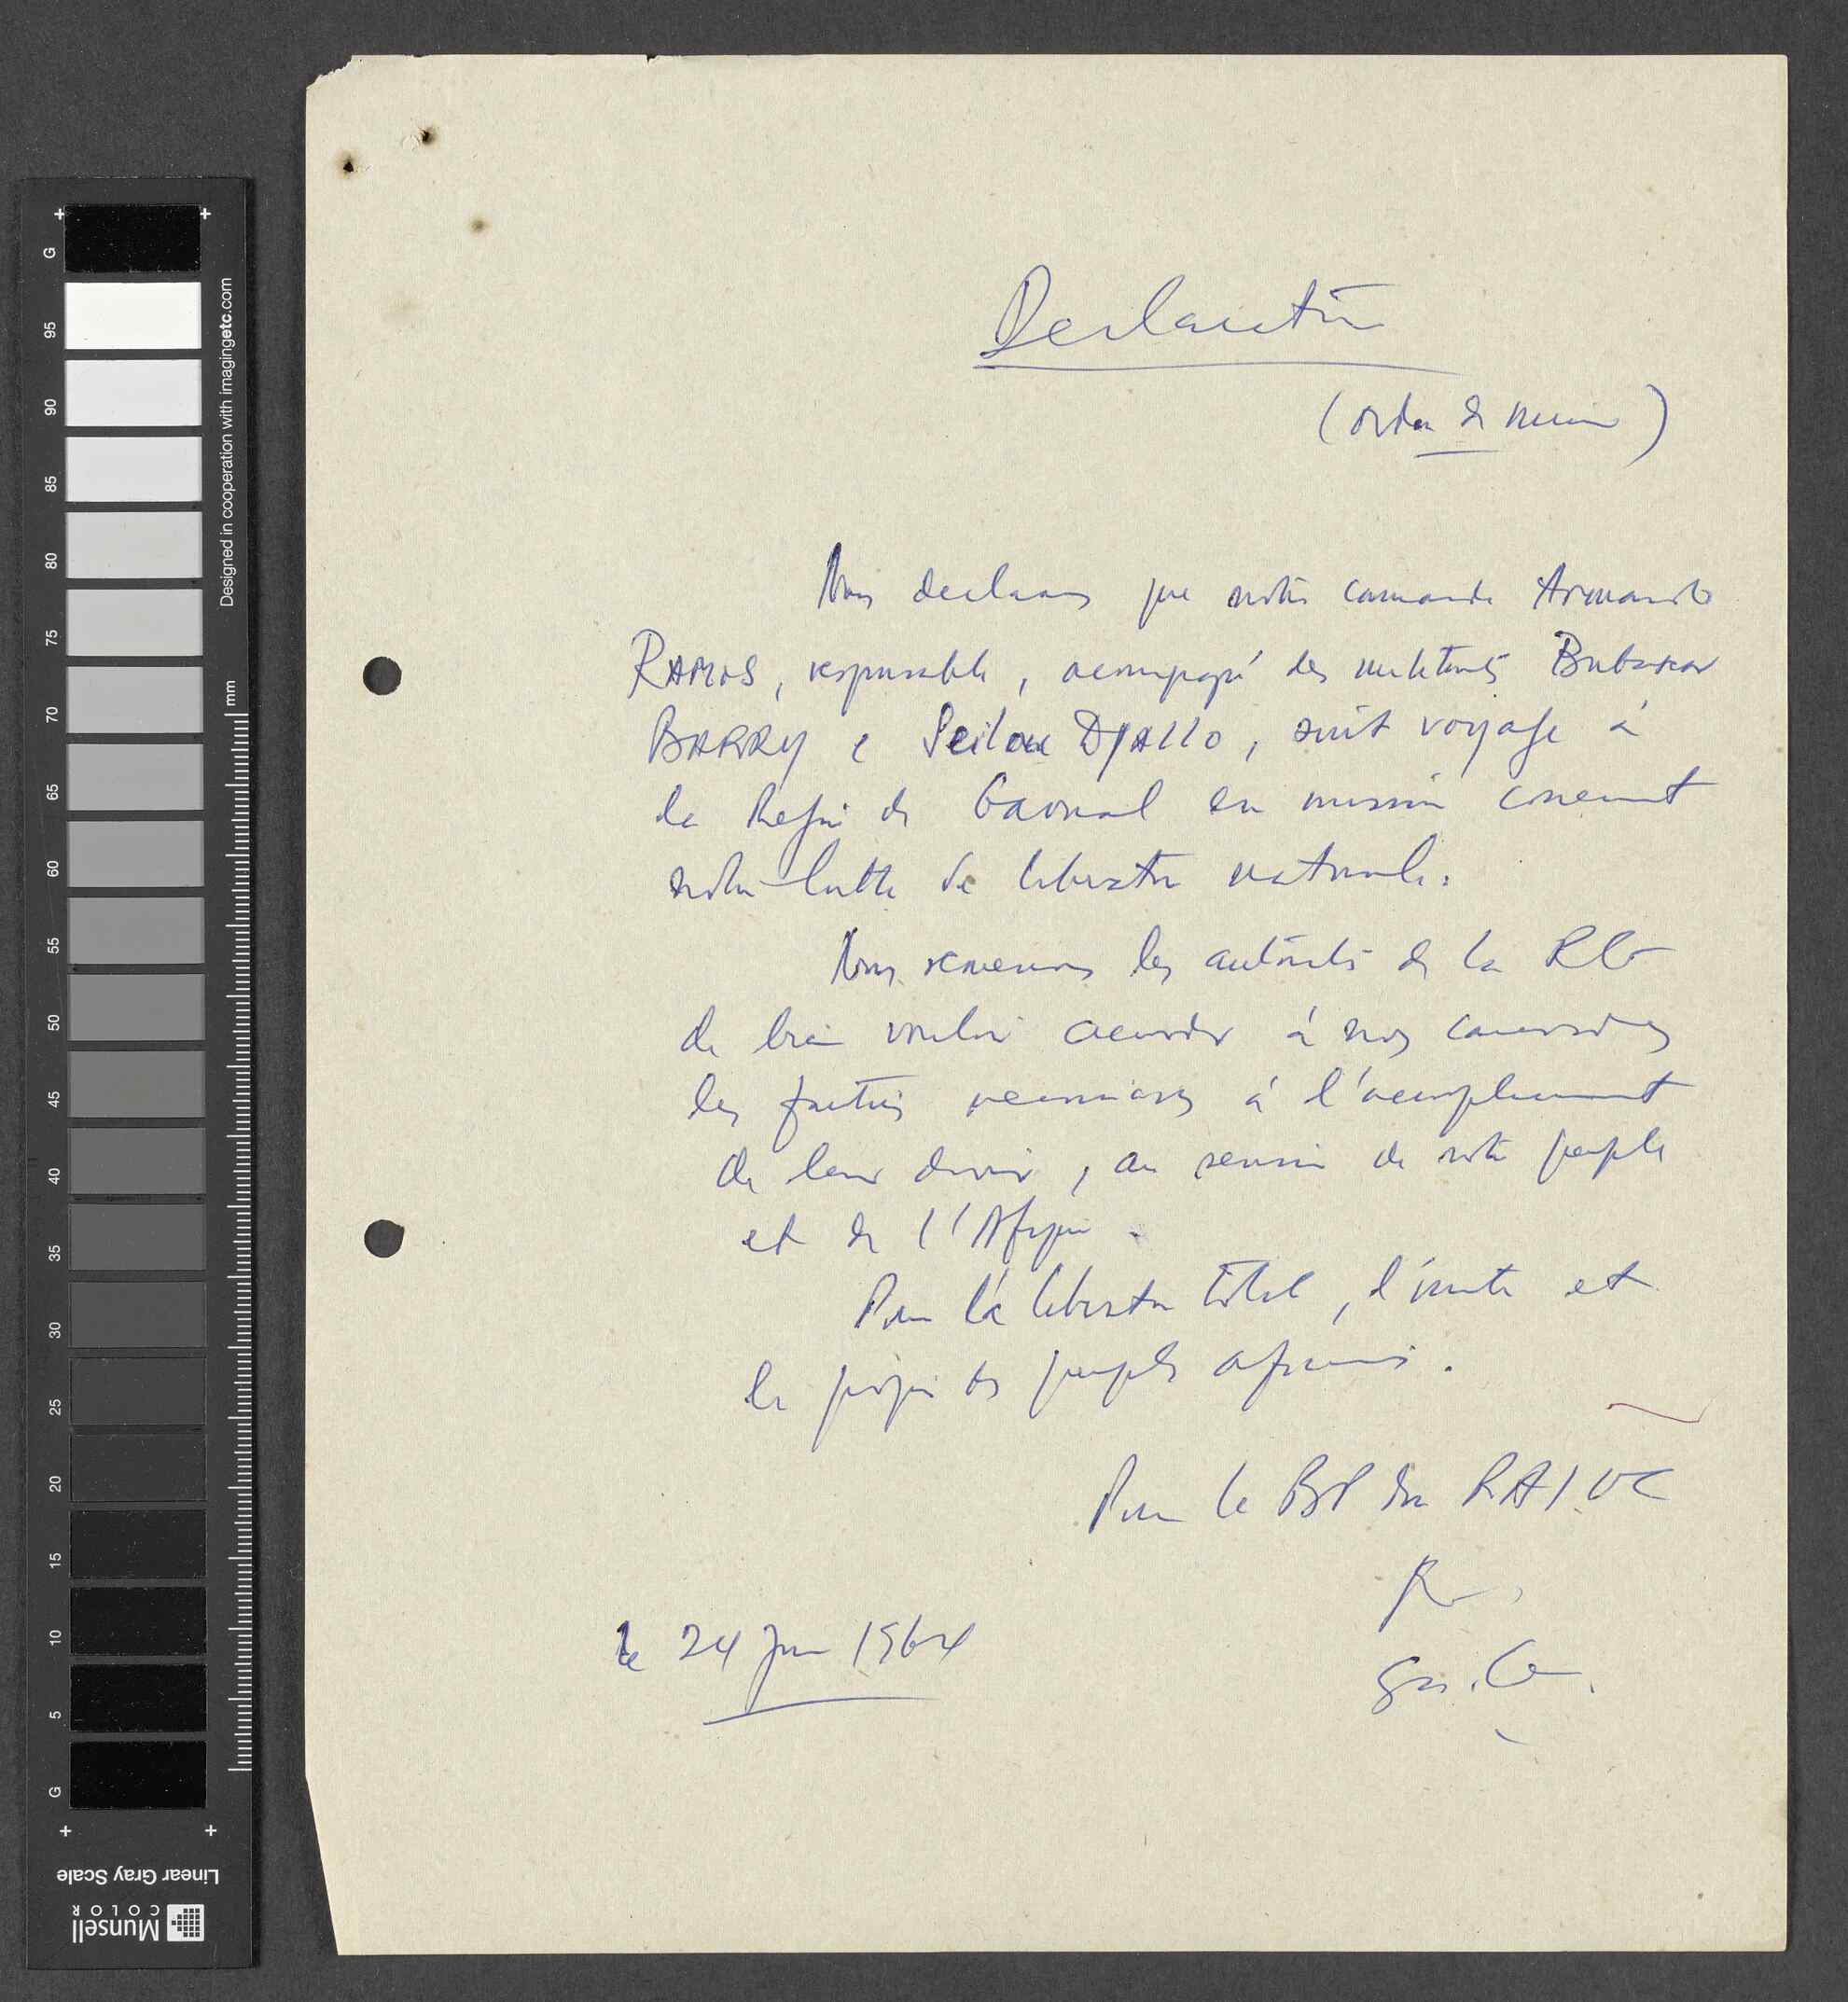 Declaration
(ordre de mission)
Nous declarons que notre camarade Armando
RAMOS, responsable, accompagné des militants Bubakar
BARRY e Seilou DJALLO, sont voyage à
la Région de Gaoual en mission concernant
notre lutte de liberation nationale.
Nous remercions les autorités de la RG
de bien vouloir accorder à nos camarades
les facilités necessaires à l'accomplissement
de leur devoir, au service de notre peuple
et de l'Afrique.
Pour la liberation total, l'unité et
le progrès des peuples africains.
Pour le BP du PAIGC
le 24 Juin 1964
G
95
90
85
80
75
70
65
60
55
50
45
40
35
30
25
20
15
10
5
G
Designed in cooperation with imagingetc.com
mm
Linear Gray Scale
Munsell
COLOR